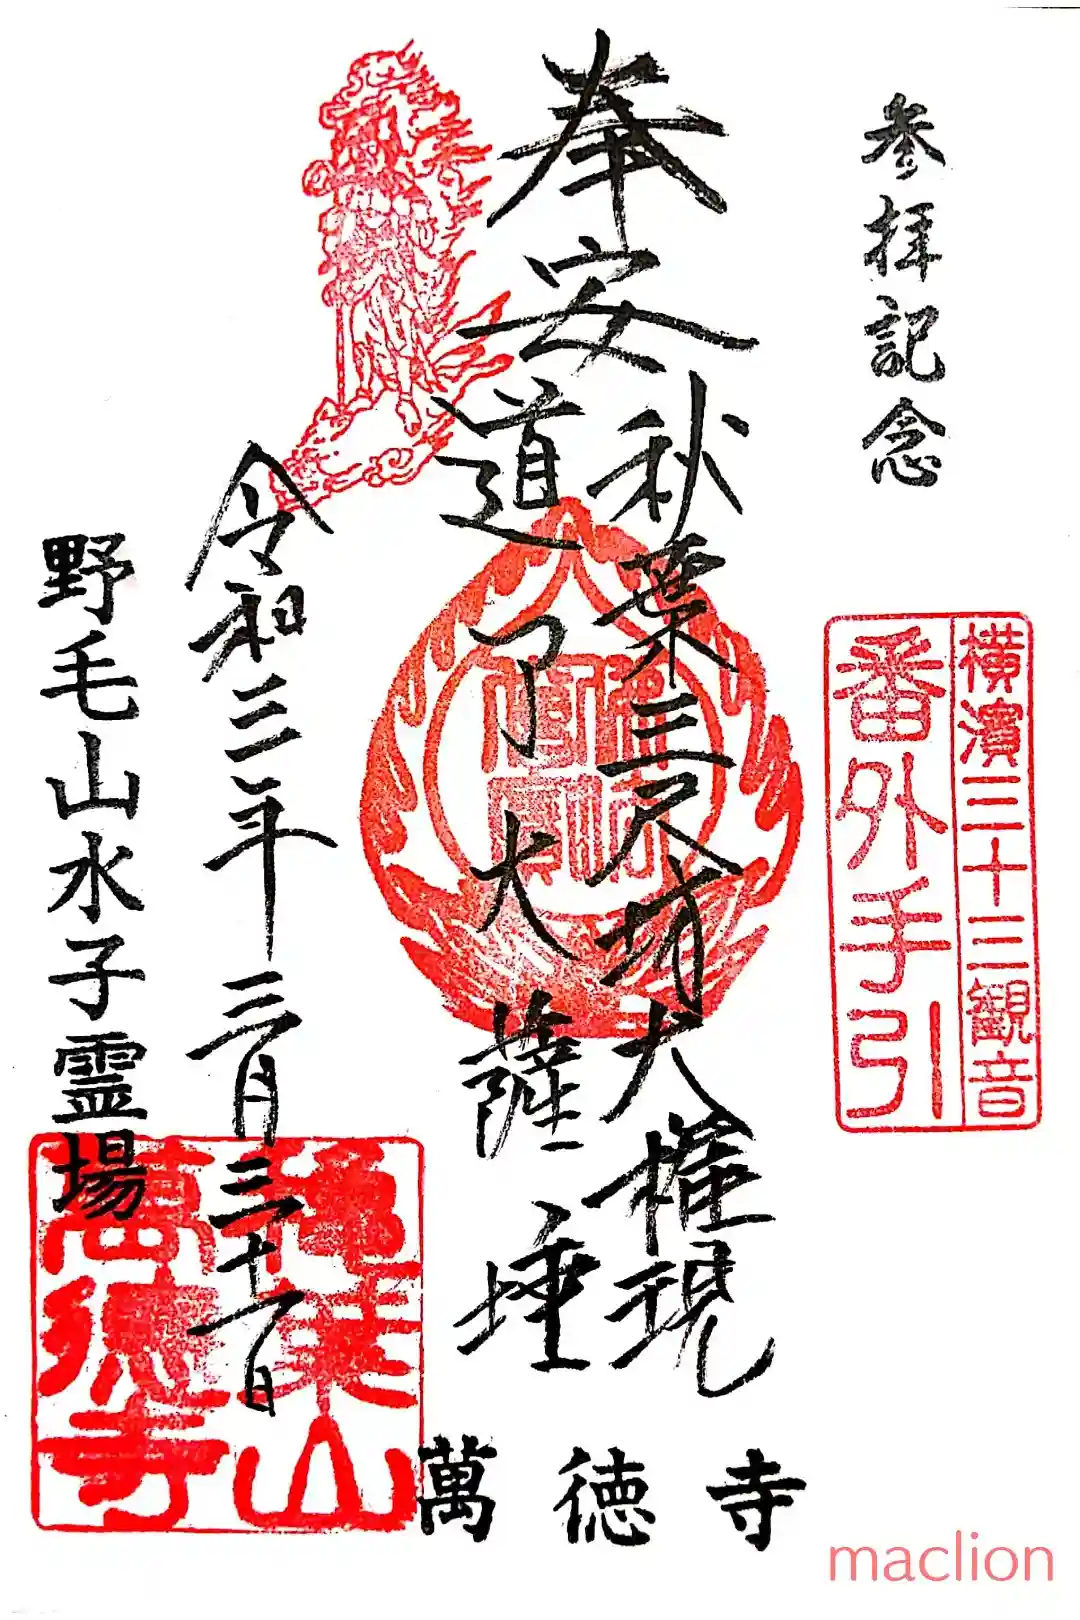 参拝記念
横濱三十三観音
番外手引
奉安
秋葉三尺坊大権現
道了大薩埵
令和三年三月三十一日
野毛山水子霊場
萬徳寺
萬徳寺
maclion